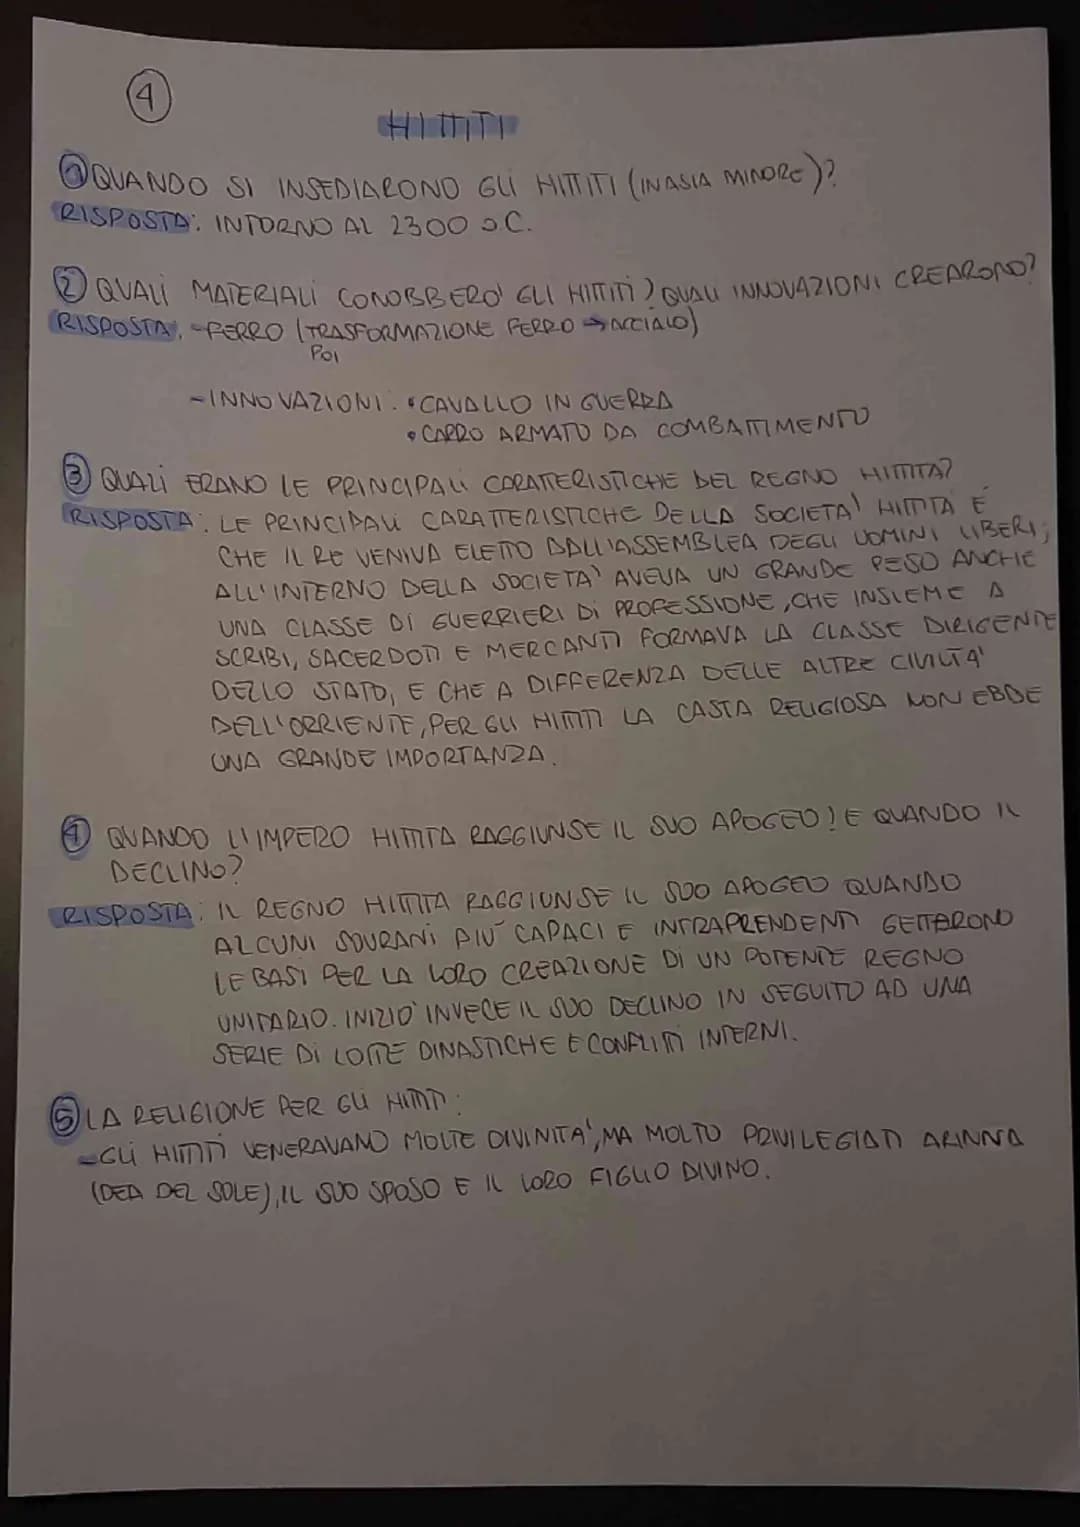 4
HITTITI
1 QUANDO SI INSEDIARONO GLI HITTITI (IN ASIA MINORE)?
RISPOSTA: INTORNO AL 2300 a.C.
2 QUALI MATERIALI CONOBBERO' GLI HITTITI? QUALI INNOVAZIONI CREARONO?
RISPOSTA: -FERRO (TRASFORMAZIONE FERRO → ACCIAIO)
POI
-INNOVAZIONI: • CAVALLO IN GUERRA
• CARRO ARMATO DA COMBATTIMENTO
3 QUALI ERANO LE PRINCIPALI CARATTERISTICHE DEL REGNO HITTITA?
RISPOSTA: LE PRINCIPALI CARATTERISTICHE DELLA SOCIETA' HITTITA È
CHE IL RE VENIVA ELETTO DALL'ASSEMBLEA DEGLI UOMINI LIBERI;
ALL'INTERNO DELLA SOCIETA' AVEVA UN GRANDE PESO ANCHE
UNA CLASSE DI GUERRIERI DI PROFESSIONE, CHE INSIEME A
SCRIBI, SACERDOTI E MERCANTI FORMAVA LA CLASSE DIRIGENTE
DELLO STATO, E CHE A DIFFERENZA DELLE ALTRE CIVILTA'
DELL'ORRIENTE, PER GLI HITTITI LA CASTA RELIGIOSA NON EBBE
UNA GRANDE IMPORTANZA.
4 QUANDO L'IMPERO HITTITA RAGGIUNSE IL SUO APOGEO? E QUANDO IL
DECLINO?
RISPOSTA: IL REGNO HITTITA RAGGIUNSE IL SUO APOGEO QUANDO
ALCUNI SOVRANI PIU' CAPACI E INTRAPRENDENTI GETTARONO
LE BASI PER LA LORO CREAZIONE DI UN POTENTE REGNO
UNITARIO. INIZIO' INVECE IL SUO DECLINO IN SEGUITO AD UNA
SERIE DI LOTTE DINASTICHE E CONFLITTI INTERNI.
5 LA RELIGIONE PER GLI HITTITI:
-GLI HITTITI VENERAVANO MOLTE DIVINITA', MA MOLTO PRIVILEGIATI ARINNA
(DEA DEL SOLE), IL SUO SPOSO E IL LORO FIGLIO DIVINO.